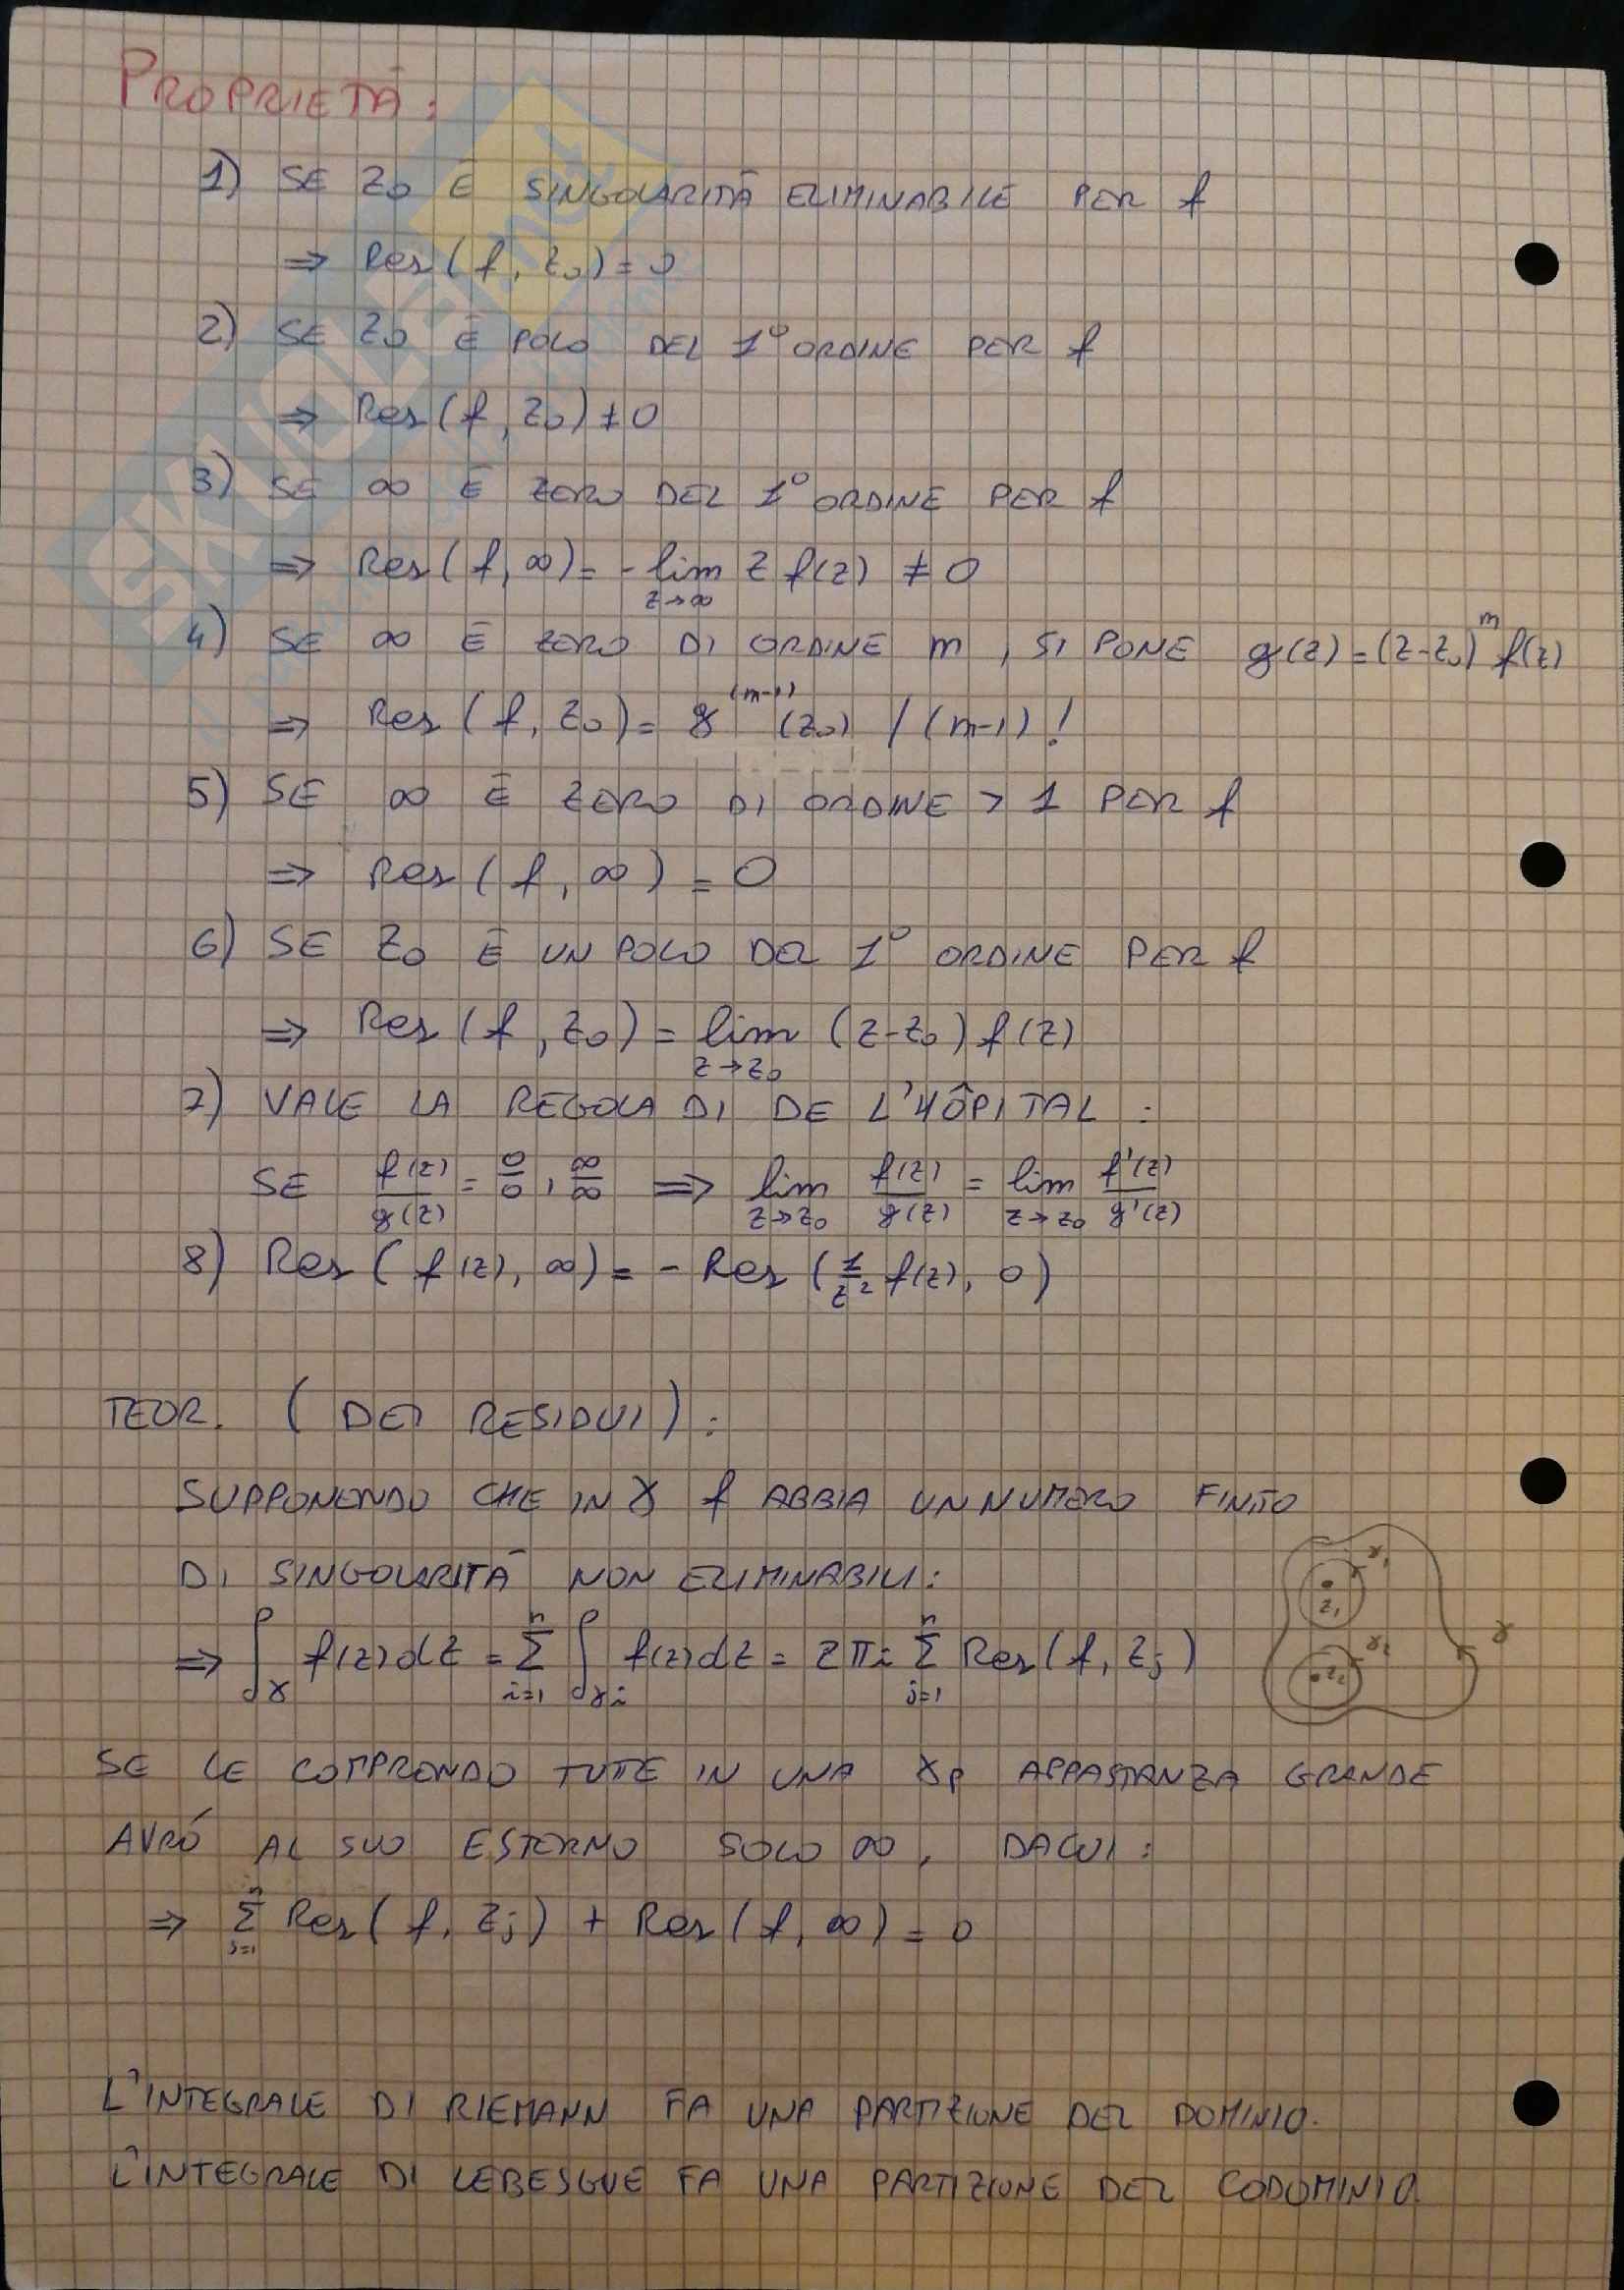 PROPRIETÀ:
1) SE z₀ È SINGOLARITÀ ELIMINABILE PER f
⇒ Res(f, z₀) = 0
2) SE z₀ È POLO DEL 1° ORDINE PER f
⇒ Res(f, z₀) ≠ 0
3) SE ∞ È ZERO DEL 1° ORDINE PER f
⇒ Res(f, ∞) = - lim_{z→∞} z f(z) ≠ 0
4) SE ∞ È ZERO DI ORDINE m, SI PONE g(z) = (z-z₀)^m f(z)
⇒ Res(f, z₀) = g^{(m-1)}(z₀) / (m-1)!
5) SE ∞ È ZERO DI ORDINE > 1 PER f
⇒ Res(f, ∞) = 0
6) SE z₀ È UN POLO DEL 1° ORDINE PER f
⇒ Res(f, z₀) = lim_{z→z₀} (z-z₀) f(z)
7) VALE LA REGOLA DI DE L'HÔPITAL:
SE f(z)/g(z) = 0/0, ∞/∞ ⇒ lim_{z→z₀} f(z)/g(z) = lim_{z→z₀} f'(z)/g'(z)
8) Res(f(z), ∞) = - Res(1/z² f(z), 0)
TEOR. (DEI RESIDUI):
SUPPONENDO CHE IN γ f ABBIA UN NUMERO FINITO
DI SINGOLARITÀ NON ELIMINABILI:
⇒ ∫_γ f(z)dz = Σ_{i=1}^n ∫_{γi} f(z)dz = 2πi Σ_{j=1}^n Res(f, z_j)
γ₁
z₁
γ₂
z₂
γ
SE LE COMPRENDO TUTTE IN UNA γρ APPASTANZA GRANDE
AVRÓ AL SUO ESTERNO SOLO ∞, DACUI:
⇒ Σ_{j=1}^n Res(f, z_j) + Res(f, ∞) = 0
L'INTEGRALE DI RIEMANN FA UNA PARTIZIONE DEL DOMINIO.
L'INTEGRALE DI LEBESGUE FA UNA PARTIZIONE DEL CODOMINIO.
SKUOLA.net